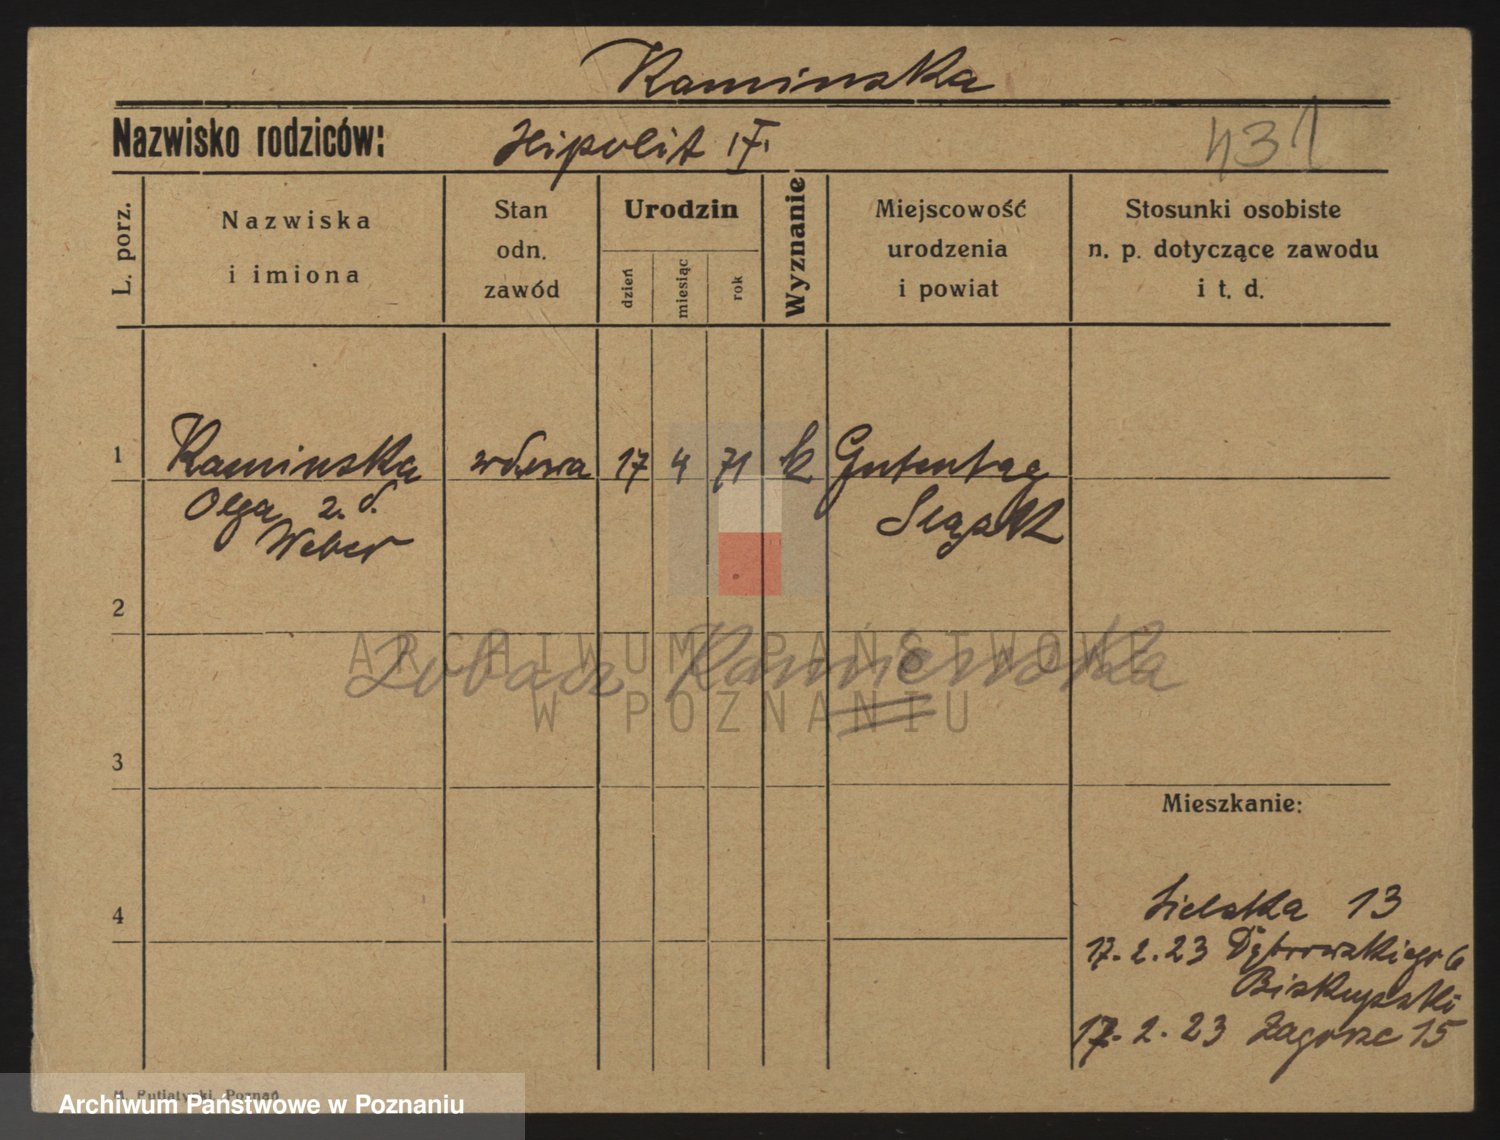 Kaminska
Nazwisko rodziców:
Hipolit
431
L. porz.
Nazwiska
i imiona
Stan
odn.
zawód
Urodzin
dzień
miesiąc
rok
Wyznanie
Miejscowość
urodzenia
i powiat
Stosunki osobiste
n. p. dotyczące zawodu
i t. d.
1
Kaminska
wdowa
17
4
71
k
Gutentag
Olga z. d.
Sląsk
Weber
2
ARCHIWUM PAŃSTWOWE
Zobacz Kamienska
W POZNANIU
3
Mieszkanie:
4
Sielska 13
17. 2. 23 Dąbrowskiego 6
Biskupski
17. 2. 23 Zagorze 15
Poznań
Archiwum Państwowe w Poznaniu